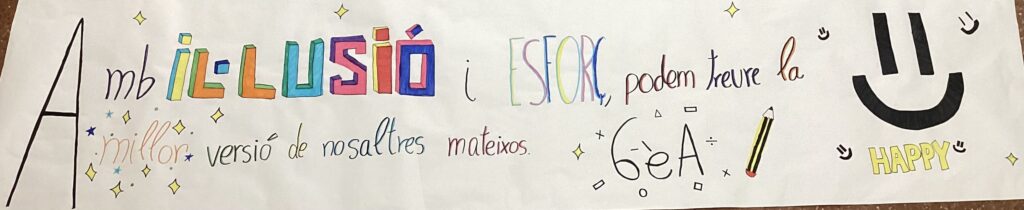 Amb IL·LUSIÓ i ESFORÇ, podem treure la
millor versió de nosaltres mateixos.
6èA
HAPPY